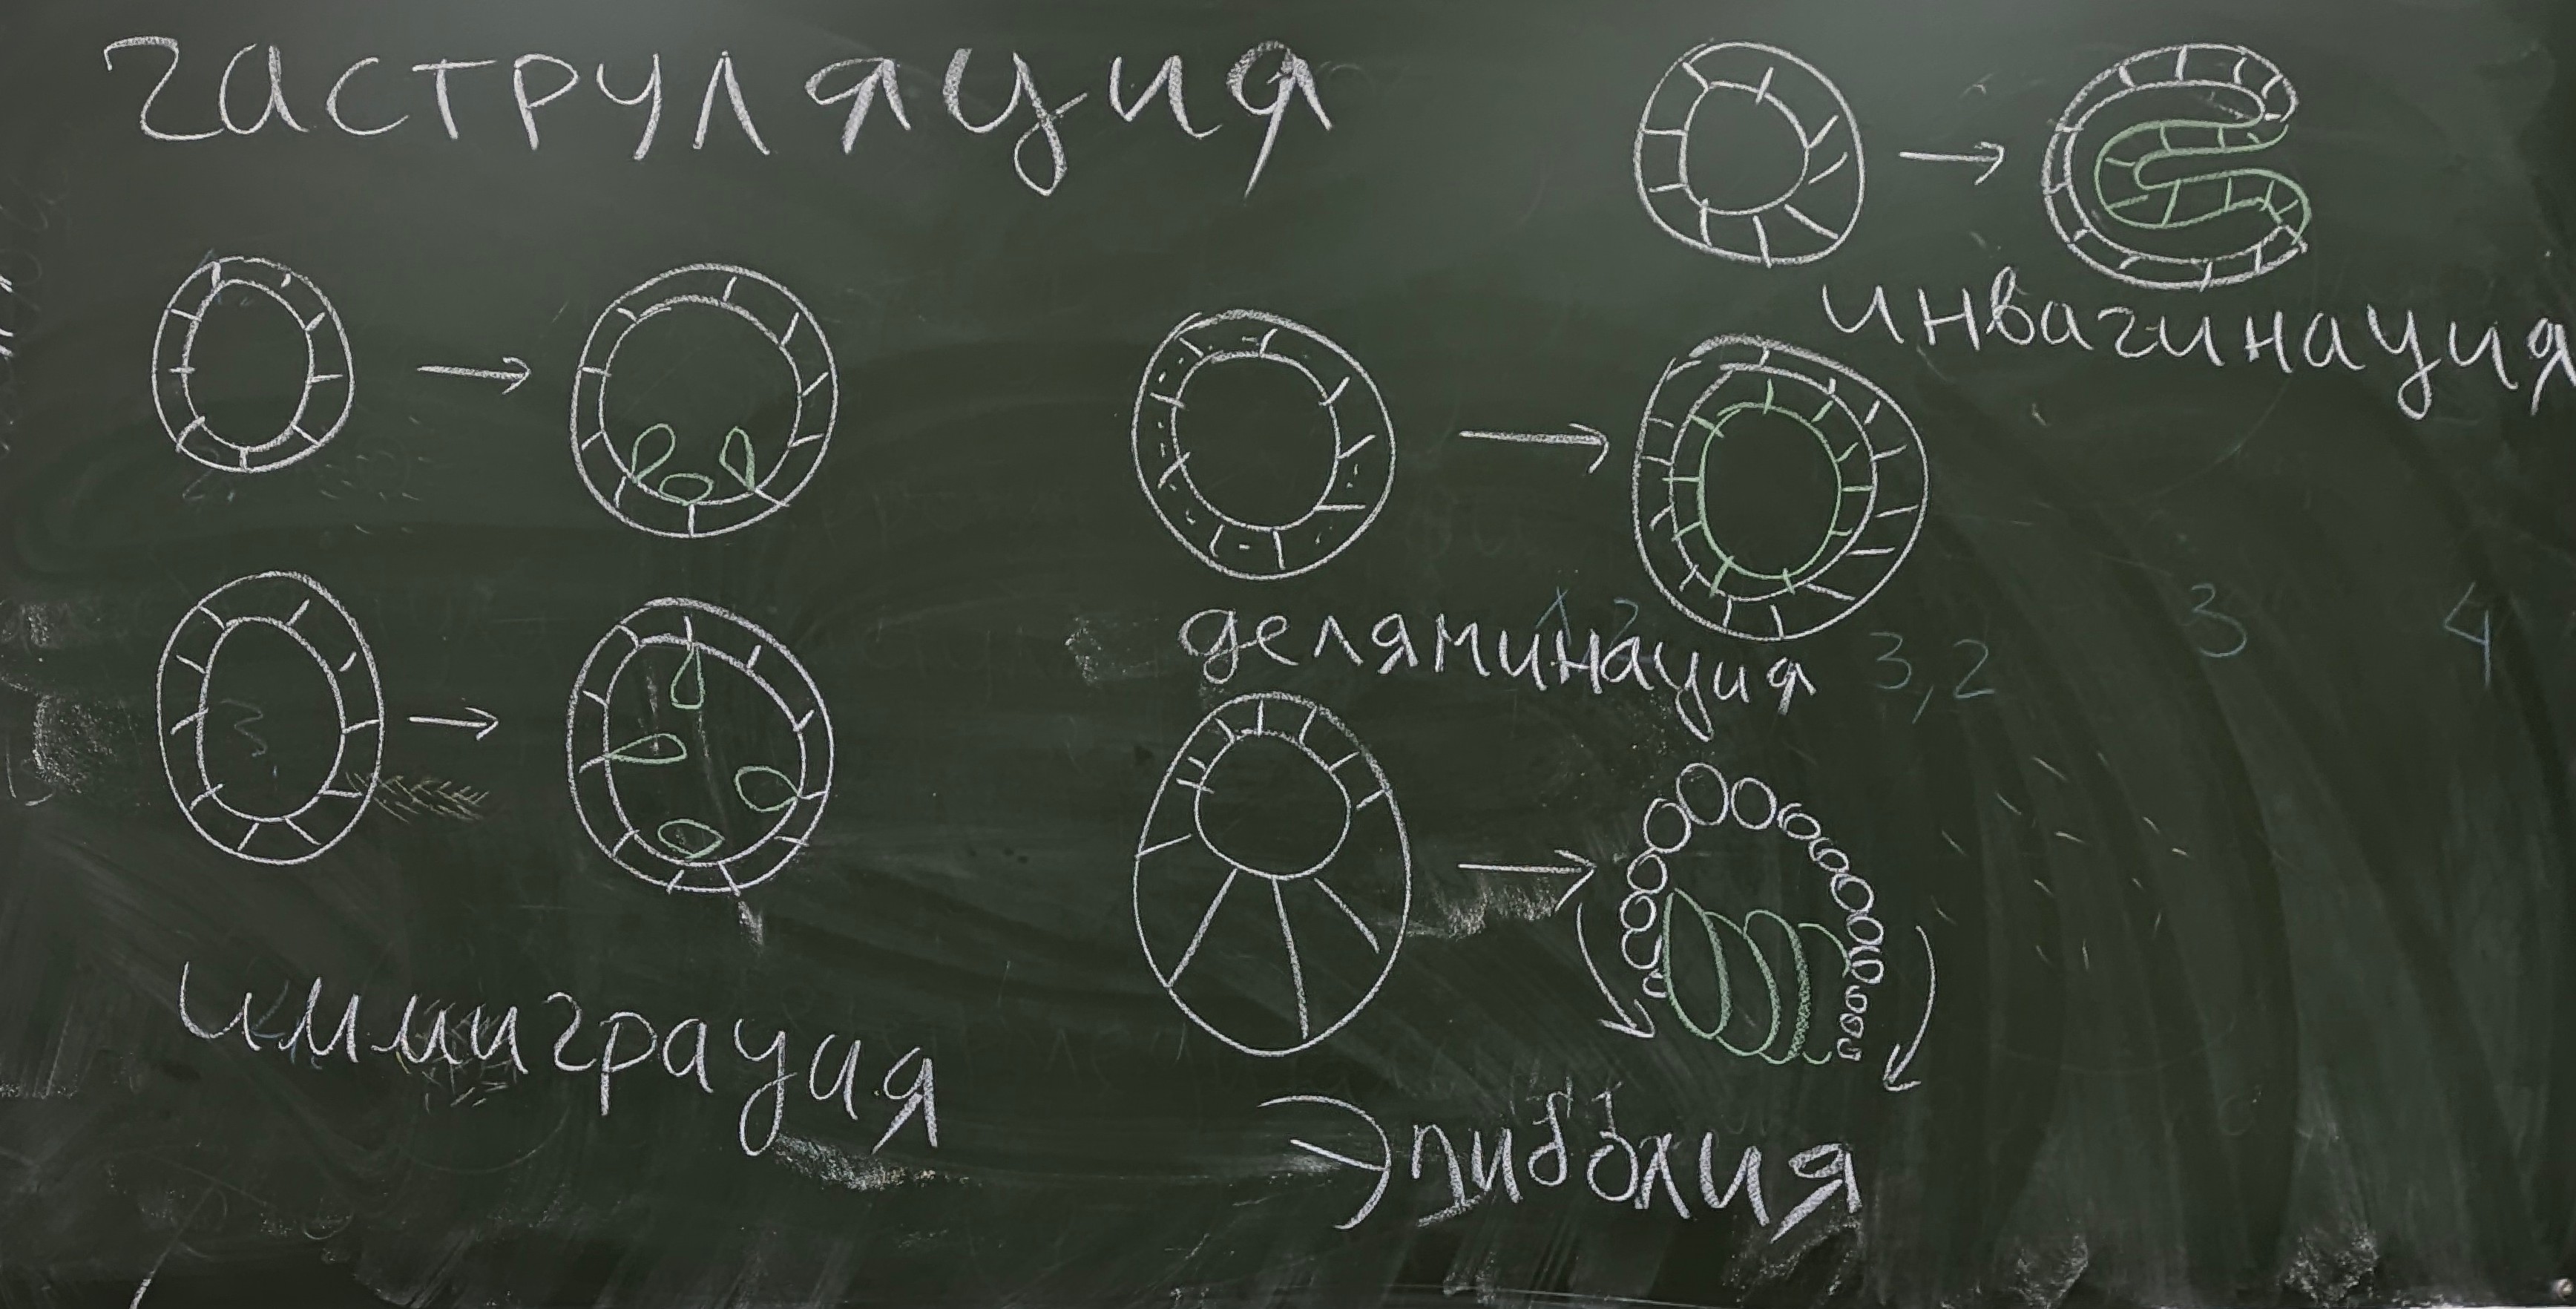 гаструляция
инвагинация
деляминация
3,2
3
4
3
иммиграция
Эпиболия